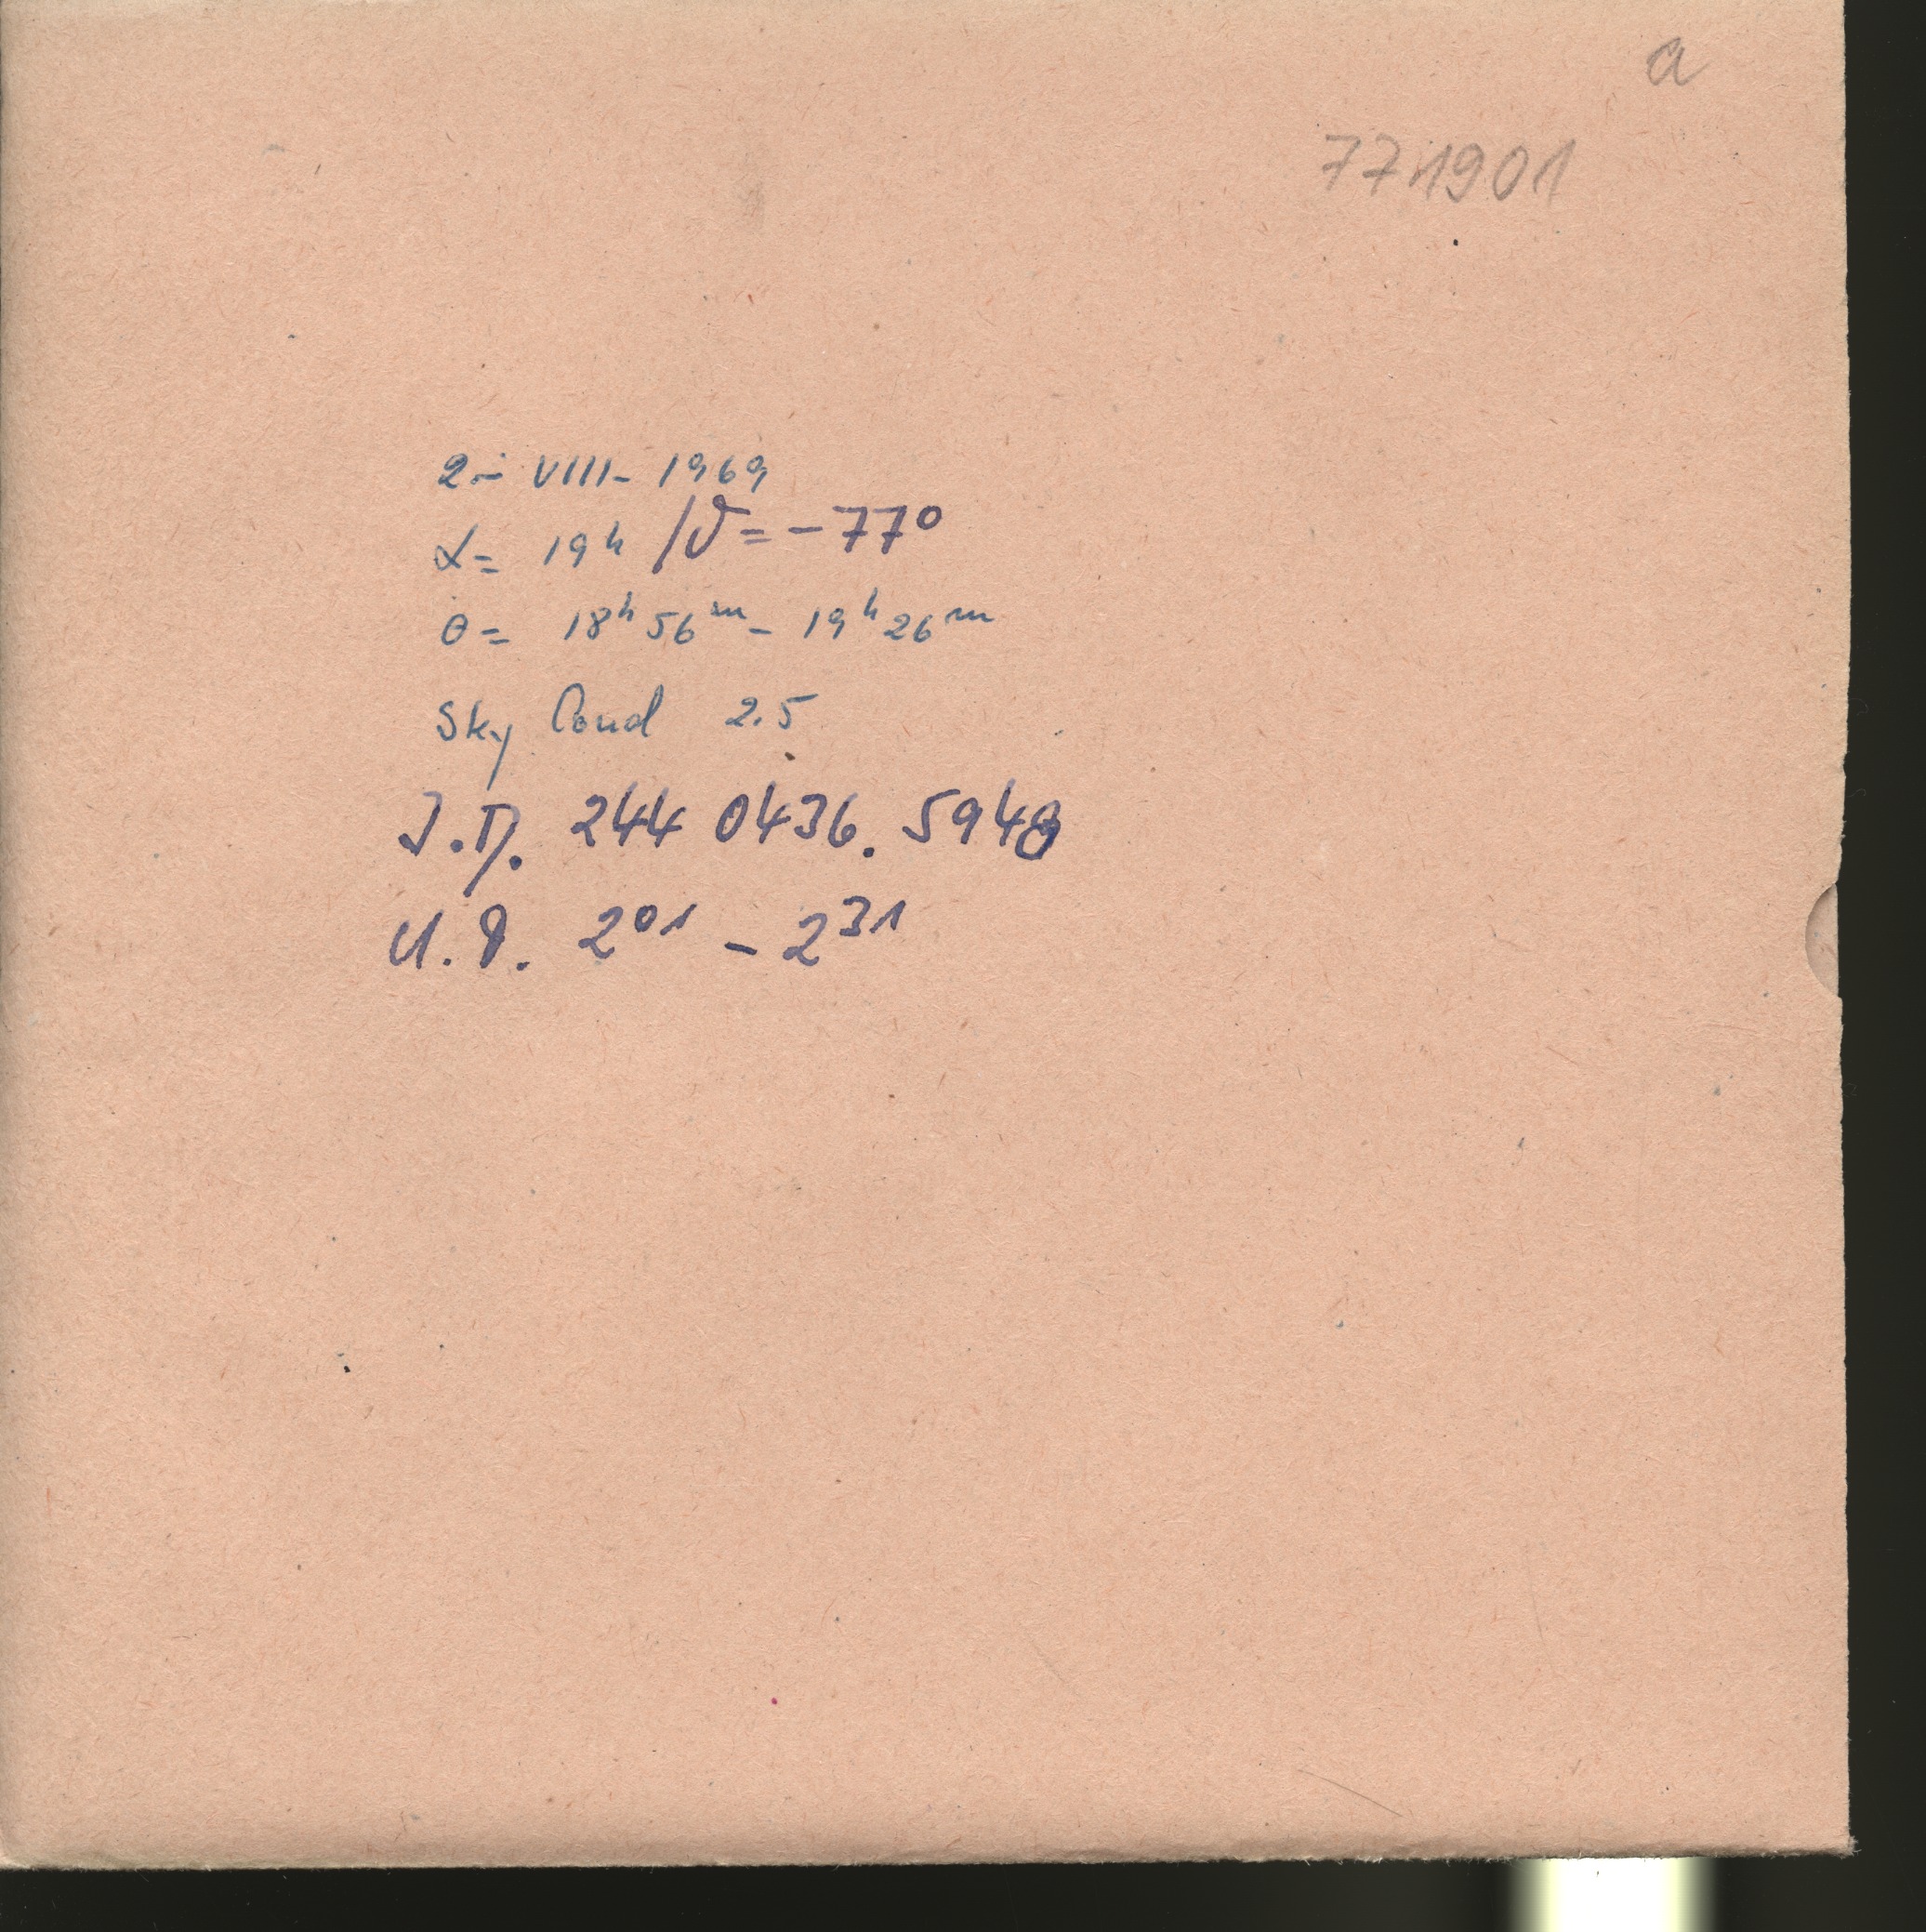 a
771901
2 - VIII - 1969
α = 19ʰ / δ = -77°
θ = 18ʰ 56ᵐ - 19ʰ 26ᵐ
Sky Cond 2.5
J.D. 244 0436.5948
U.T. 2⁰¹ - 2³¹